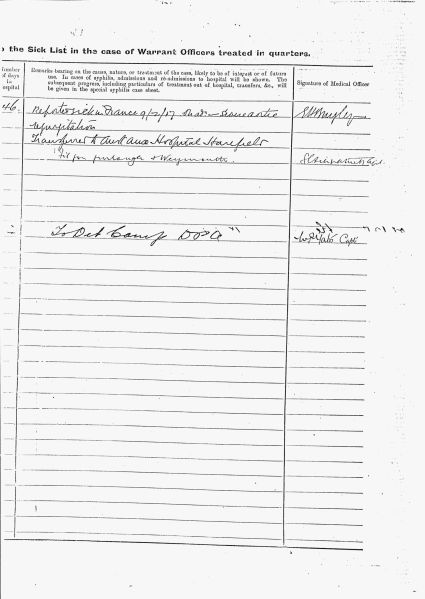 the Sick List in the case of Warrant Officers treated in quarters.
Number of days in hospital
Remarks bearing on the cause, nature, or treatment of the case, likely to be of interest or of future
use. In cases of syphilis, admissions and re-admissions to hospital will be shown. The
subsequent progress, including particulars of treatment out of hospital, transfers, &c., will
be given in the special syphilis case sheet.
Signature of Medical Officer
46.
Reports sick in France 9/2/17
regurgitation
Transferred to Aust Aux Hospital Harefield
Fit for furlough & Weymouth
To Det Camp
Capt